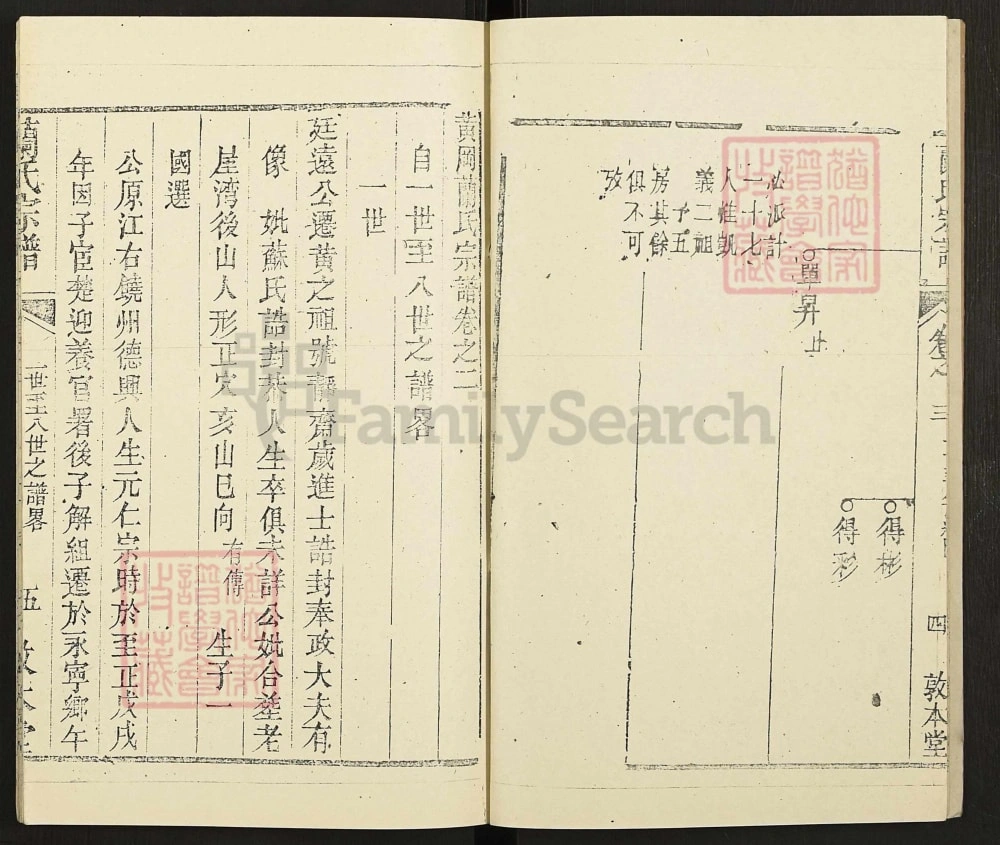 蘭氏宗譜
卷之
三
四
敦本堂
得彬
得彩
單昇止
派計
一十七
人惟凱
義二祖
予五
房其餘
俱不可
攷
黄岡蘭氏宗譜卷之二
自一世至八世之譜畧
一世
廷遠公遷黄之祖號靜齋歲進士誥封奉政大夫有
像 妣蘇氏誥封恭人生卒俱未詳公妣合塟老
崖湾後山人形正穴亥山巳向有傳 生子一
國選
公原江右饒州德興人生元仁宗時於至正戊戌
年因子宦楚迎養官署後子解組遷於永寧鄉午
蘭氏宗譜
一世至八世之譜畧
五
敦本堂
譜學會
FamilySearch